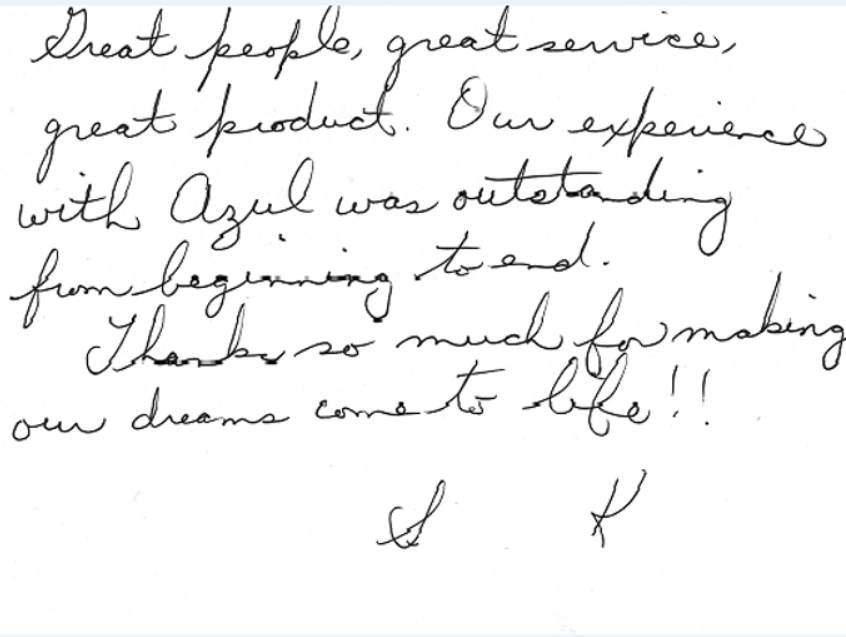 Great people, great service,
great product. Our experience
with Azul was outstanding
from beginning to end.
Thanks so much for making
our dreams come to life!!
S K